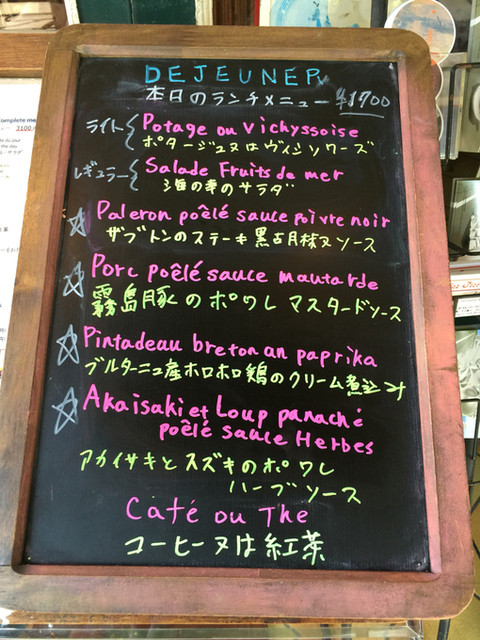 DEJEUNER
本日のランチメニュー ¥1700
ライト Potage ou Vichyssoise
ポタージュヌはヴィシソワーズ
レギュラー Salade Fruits de mer
海の幸のサラダ
☆ Paleron poêlé sauce poivre noir
ザブトンのステーキ 黒古月椒ソース
☆ Porc poêlé sauce mautarde
霧島豚のポワレ マスタードソース
☆ Pintadeau breton an paprika
ブルターニュ産ホロホロ鶏のクリーム煮込み
☆ Akaisaki et Loup panaché
poêlé sauce Herbes
アカイサキとスズキのポワレ
ハーブソース
Café ou The
コーヒーヌは紅茶
3100